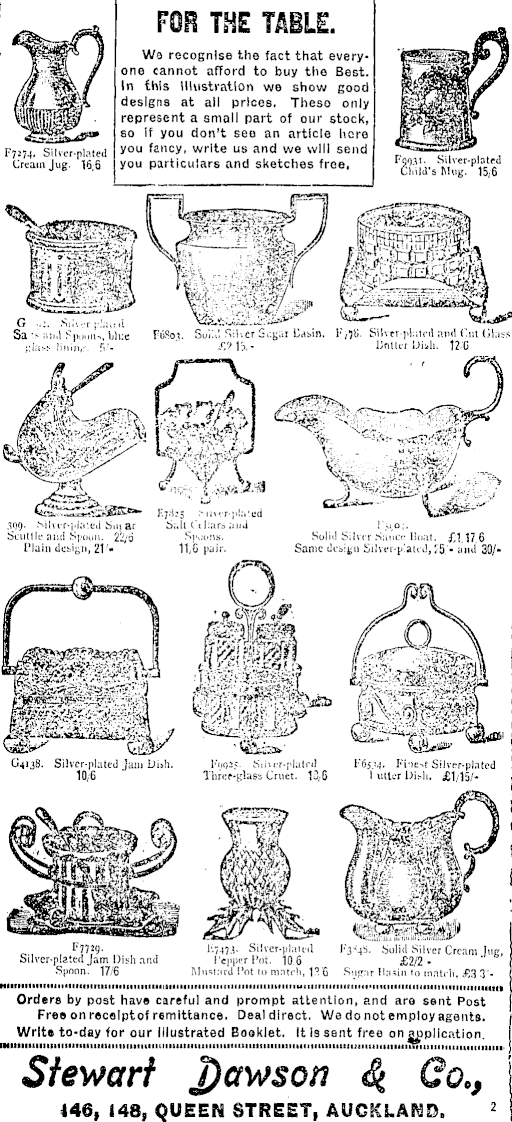 FOR THE TABLE.
We recognise the fact that every-
one cannot afford to buy the Best.
In this illustration we show good
designs at all prices. These only
represent a small part of our stock,
so if you don't see an article here
you fancy, write us and we will send
you particulars and sketches free.
F7274. Silver-plated
Cream Jug. 16/6
F9931. Silver-plated
Child's Mug. 15/6
Silver-plated
and Spoons, blue
glass lining. 5/-
F6803. Solid Silver Sugar Basin.
£2 15/-
Silver-plated and Cut Glass
Butter Dish. 12/6
309. Silver-plated Sugar
Scuttle and Spoon. 22/6
Plain design, 21/-
Silver-plated
Salt Cellars and
Spoons.
11/6 pair.
Solid Silver Sauce Boat. £1 17 6
Same design Silver-plated, and 30/-
G4138. Silver-plated Jam Dish.
10/6
F9925. Silver-plated
Three-glass Cruet.
F6534. Finest Silver-plated
Butter Dish. £1/15/-
F7729.
Silver-plated Jam Dish and
Spoon. 17/6
E7473. Silver-plated
Pepper Pot. 10 6
Mustard Pot to match,
Solid Silver Cream Jug,
£2/2 -
Sugar Basin to match, £3 3/-
Orders by post have careful and prompt attention, and are sent Post
Free on receipt of remittance. Deal direct. We do not employ agents.
Write to-day for our Illustrated Booklet. It is sent free on application.
Stewart Dawson & Co.,
146, 148, QUEEN STREET, AUCKLAND.
2